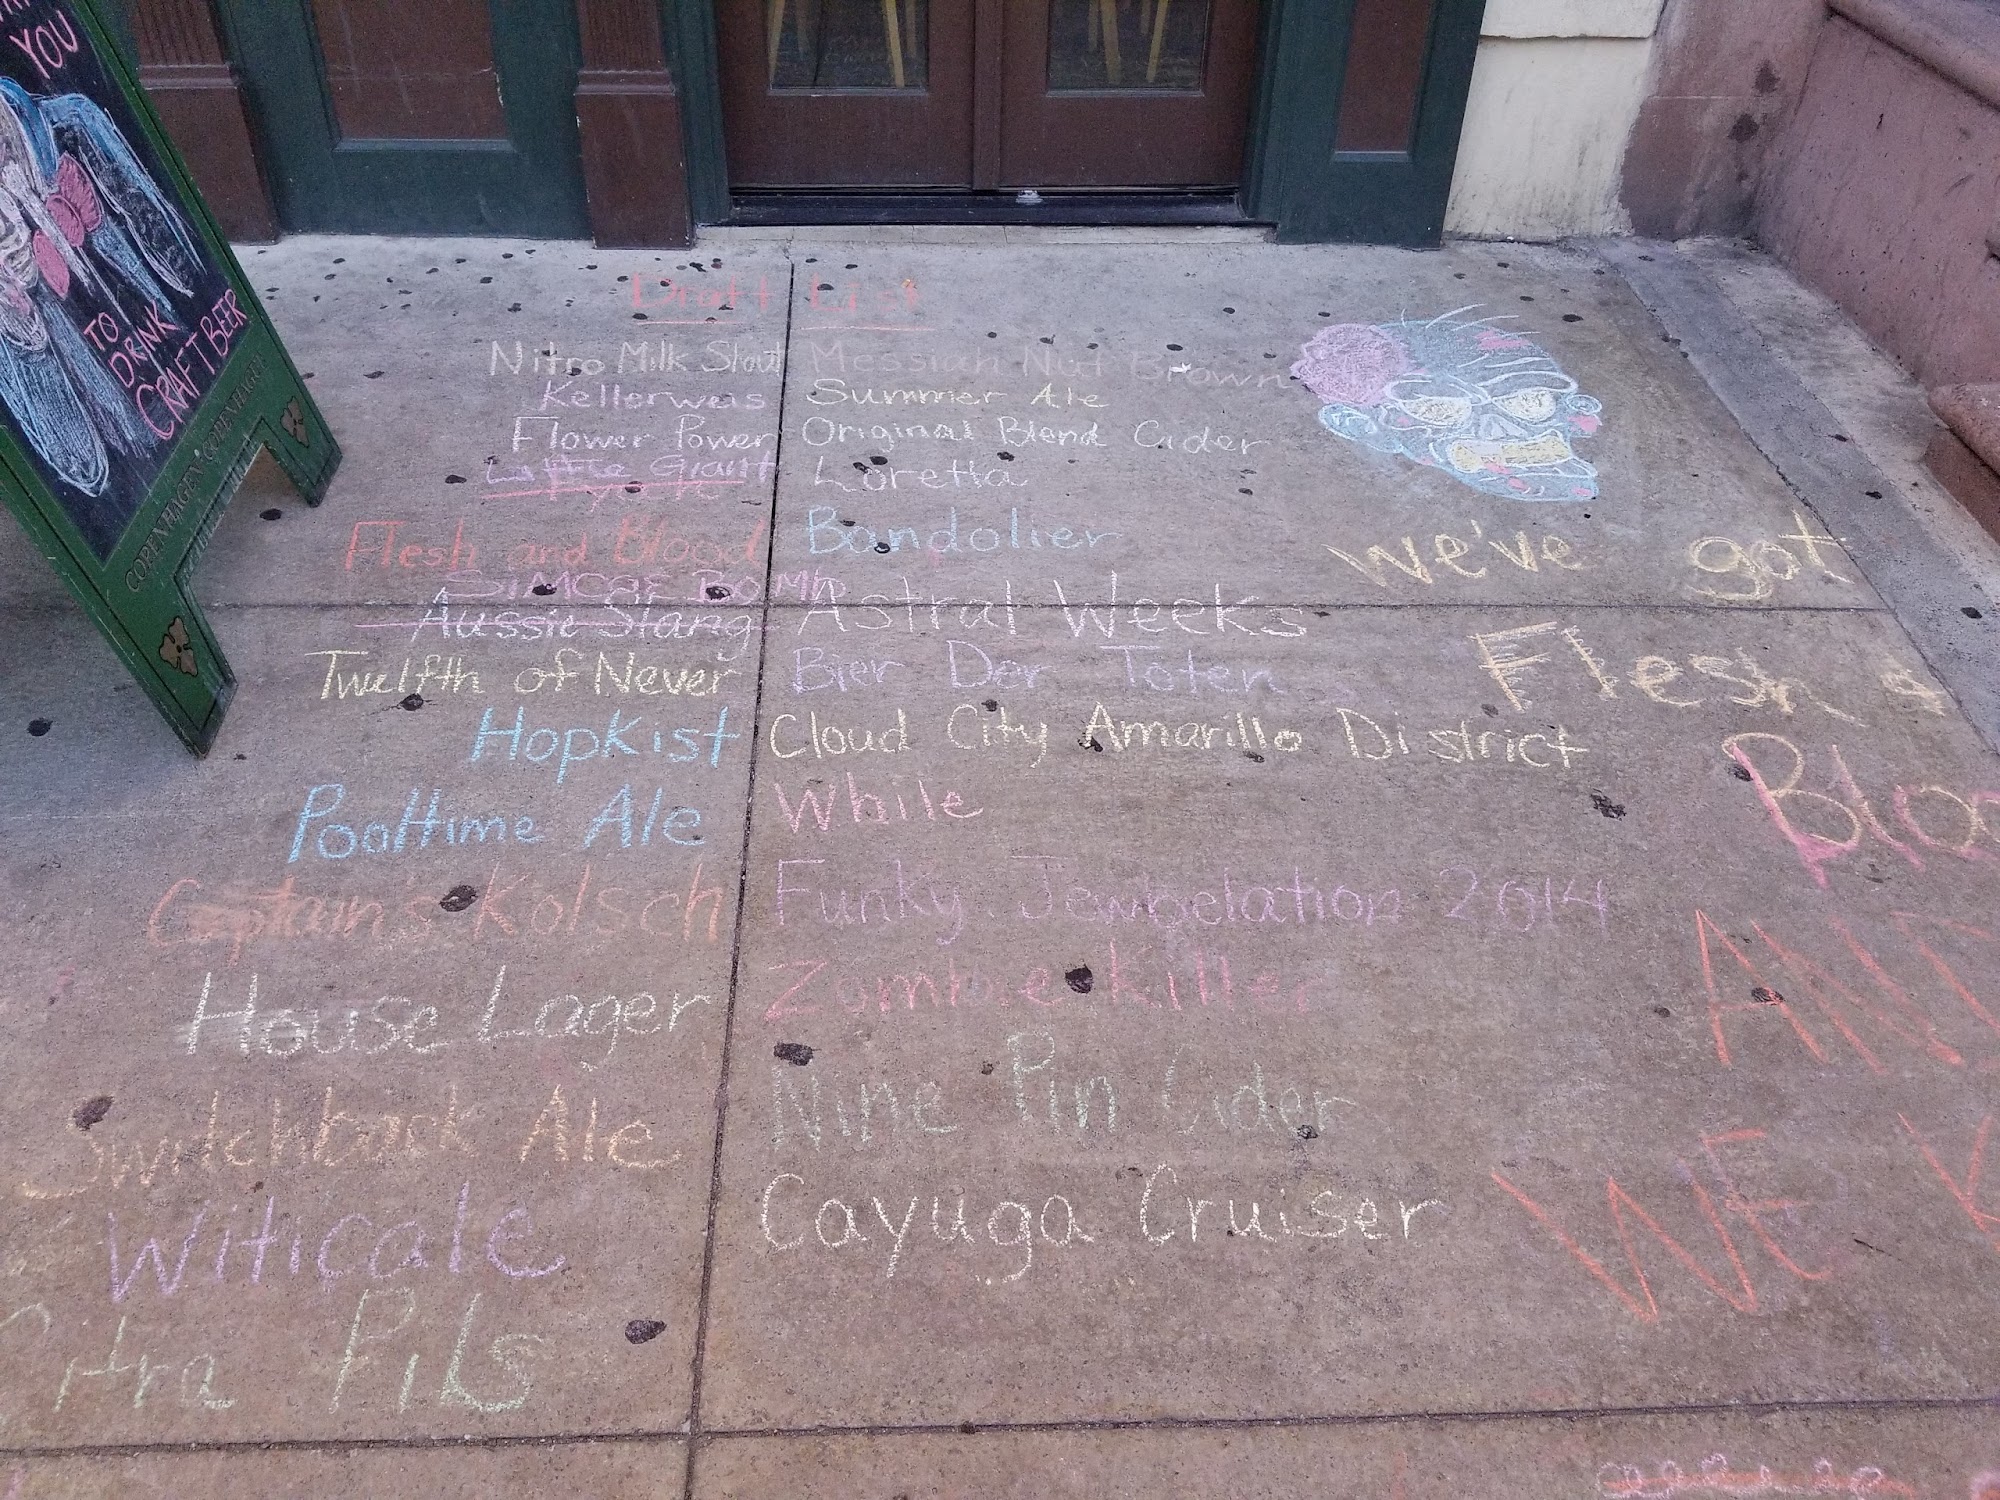 YOU
TO
DRINK
CRAFT BEER
COPENHAGEN COPENHAGEN
Draft List
Nitro Milk Stout
Kellerweis
Flower Power
Little Giant
Flesh and Blood
SIMCOE BOMB
Aussie Slang
Twelfth of Never
Hopkist
Pooltime Ale
Captain's Kolsch
House Lager
Switchback Ale
Witicale
Pils
Messiah Nut Brown
Summer Ale
Original Blend Cider
Loretta
Bandolier
Astral Weeks
Bier Der Toten
Cloud City Amarillo District
While
Funky Jewbelation 2014
Zombie Killer
Nine Pin Cider
Cayuga Cruiser
we've got
Flesh &
Bloo
AND
WE K